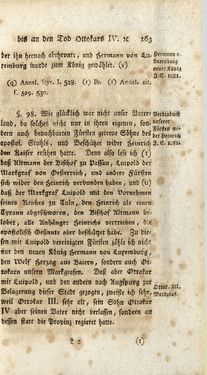 bis an den Tod Ottokars IV. ꝛc 163
der ihn hernach abthronte, und Hermann von Lu-
xemburg wurde zum König gewählet. (s)
Hermann v.
Luxenburg
neuer König
J. C. 1081.
(q) Annal. Styr. I. 528. (r) Ib. (s) Annal. cit.
f. 529. 530.
§. 98. Wie glücklich war nicht unser Vater-
land, da solches nicht nur in ihren eigenen, son-
dern auch benachbarten Fürsten getreue Söhne des
apost. Stuhls, und Beschützer wider Heinrich
den Kaiser ersehen hatte. Denn also seh ich (t)
daß Altmann der Bischof zu Passau, Luipold der
Markgraf von Oesterreich, und andere Fürsten
sich wider den Heinrich verbunden hatten, und (u)
daß der Markgraf Luipold mit den Vornehmen
seines Reiches zu Tuln, den Heinrich als einen
Tyrann abgeschworen, den Bischof Altmann be-
lobet, alle Anhänger Heinrichs vertreiben, die
apostolische Gesinnte aber beschützet habe. Zu die-
sen mit Luipold vereinigten Fürsten zähle ich nicht
nur den neuen König Hermann von Luxemburg,
den Welf Herzog aus Baiern, sondern auch Ot-
tokarn unsern Markgrafen. Daß aber Ottokar
mit Luipold, und den andern nach Augspurg zur
Belagerung dieser Stadt gezogen, zweifle ich sehr,
weil Ottokar III. sehr alt, sein Sohn Ottokar
IV aber seinen Vater nicht verlassen, sondern an
dessen statt die Provinz regieret hatte.
Verbündniß
unserer
Fürsten wi-
der Heinrich
J. C. 1081.
Ottok. III.
Markgraf.
(t)